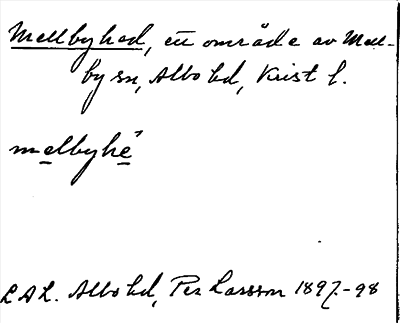 Mellbyhed, ett område av Mell-
by sn, Albo hd, Krist l.
melbyhé
LAL. Albo hd, Per Larsson 1897-98